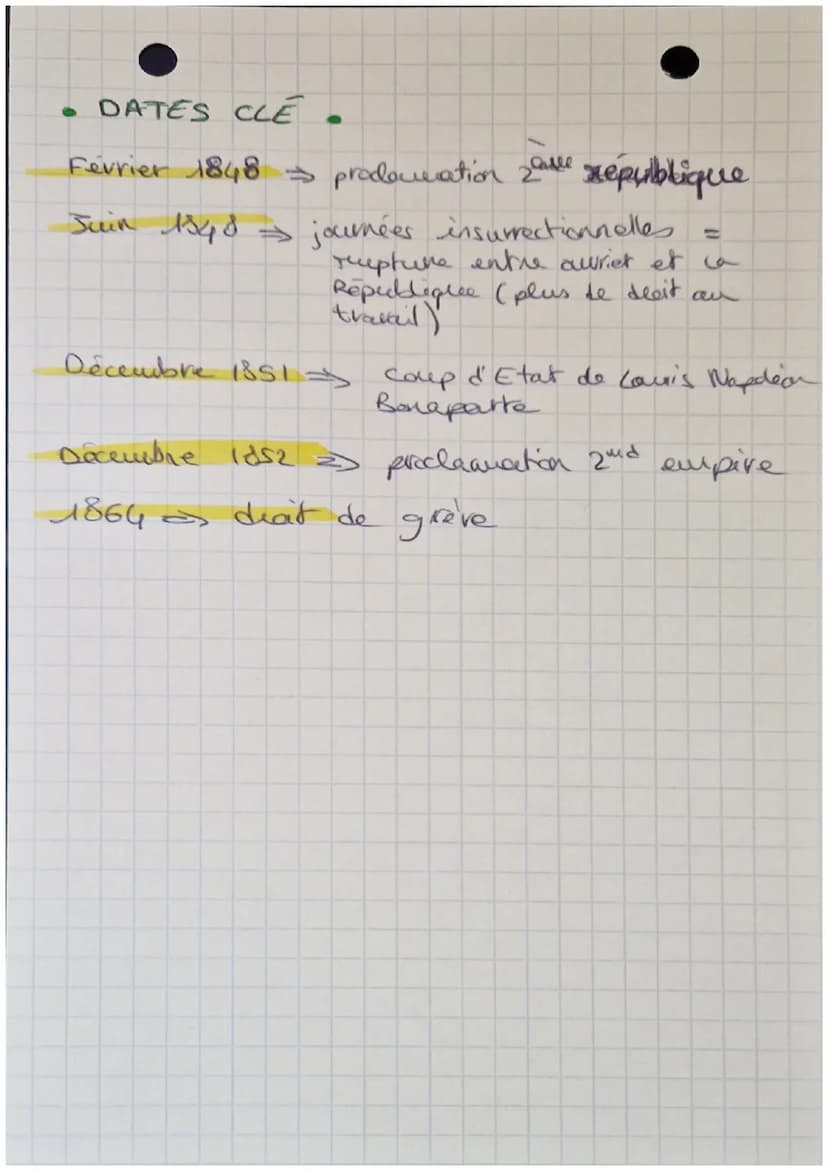 • DATES CLÉ •
Février 1848 ⇒ proclamation 2ème république
Juin 1848 ⇒ journées insurrectionnelles =
rupture entre ouvrier et la
République (plus de droit au
travail)
Décembre 1851 ⇒ coup d'Etat de Louis Napoléon
Bonaparte
Décembre 1852 ⇒ proclamation 2nd empire
1864 ⇒ droit de grève